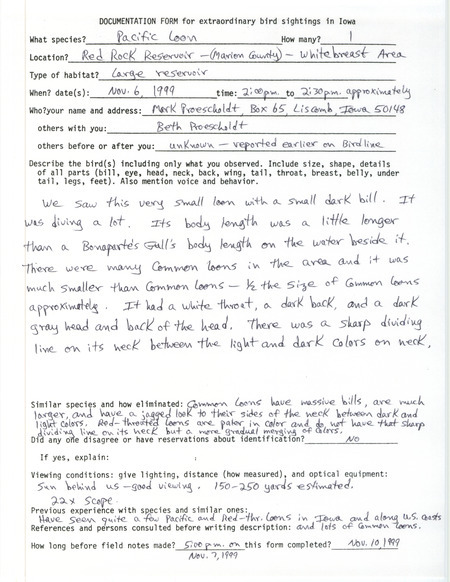 DOCUMENTATION FORM for extraordinary bird sightings in Iowa
What species? Pacific Loon How many? 1
Location? Red Rock Reservoir - (Marion County) - Whitebreast Area
Type of habitat? Large reservoir
When? date(s): Nov. 6, 1999 time: 2:00pm. to 2:30pm. approximately
Who?your name and address: Mark Proescholdt, Box 65, Liscomb, Iowa 50148
others with you: Beth Proescholdt
others before or after you: unknown - reported earlier on Birdline
Describe the bird(s) including only what you observed. Include size, shape, details
of all parts (bill, eye, head, neck, back, wing, tail, throat, breast, belly, under
tail, legs, feet). Also mention voice and behavior.
We saw this very small loon with a small dark bill. It
was diving a lot. Its body length was a little longer
than a Bonaparte's Gull's body length on the water beside it.
There were many Common Loons in the area and it was
much smaller than Common Loons - ½ the size of Common Loons
approximately. It had a white throat, a dark back, and a dark
gray head and back of the head. There was a sharp dividing
line on its neck between the light and dark colors on neck.
Similar species and how eliminated: Common Loons have massive bills, are much
larger, and have a jagged look to their sides of the neck between dark and
light colors. Red-throated Loons are paler in color and do not have that sharp
dividing line on its neck but a more gradual merging of colors.
Did any one disagree or have reservations about identification? NO
If yes, explain:
Viewing conditions: give lighting, distance (how measured), and optical equipment:
Sun behind us - good viewing. 150-250 yards estimated.
22x scope.
Previous experience with species and similar ones:
Have seen quite a few Pacific and Red-thr. Loons in Iowa and along U.S. coasts
References and persons consulted before writing description: and lots of Common Loons.
How long before field notes made? 5:00 p.m. on this form completed? Nov. 10, 1999
Nov. 7, 1999